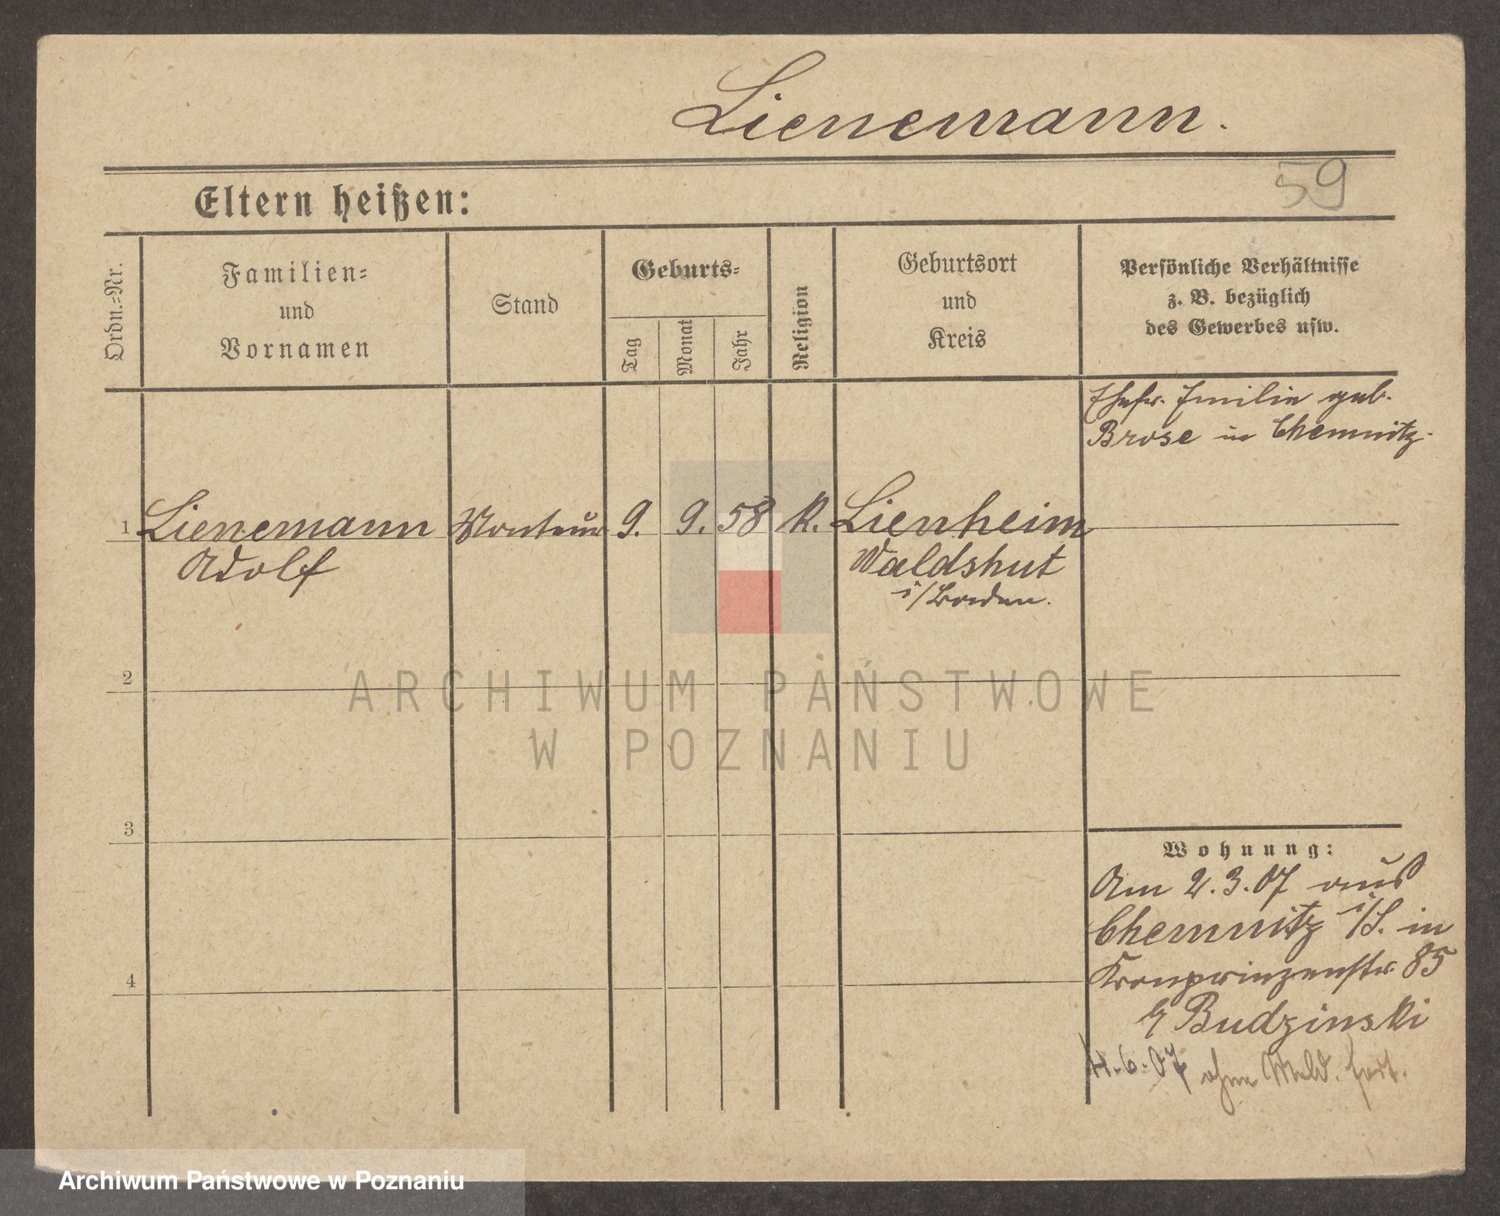 Lienemann.
59
Eltern heißen:
Ordn.-Nr.
Familien-
und
Vornamen
Stand
Geburts-
Tag
Monat
Jahr
Religion
Geburtsort
und
Kreis
Persönliche Verhältnisse
z. B. bezüglich
des Gewerbes usw.
Ehefr. Emilie geb.
Brose in Chemnitz.
1 Lienemann Monteur 9. 9. 58 k. Lienheim
Adolf Waldshut
i/Baden.
2
3
4
Wohnung:
Am 2.3.07 aus
Chemnitz i/S. in
Kronprinzenstr 85
b/ Budzinski
4.6.07 ohne Meld. fort.
ARCHIWUM PAŃSTWOWE
W POZNANIU
Archiwum Państwowe w Poznaniu